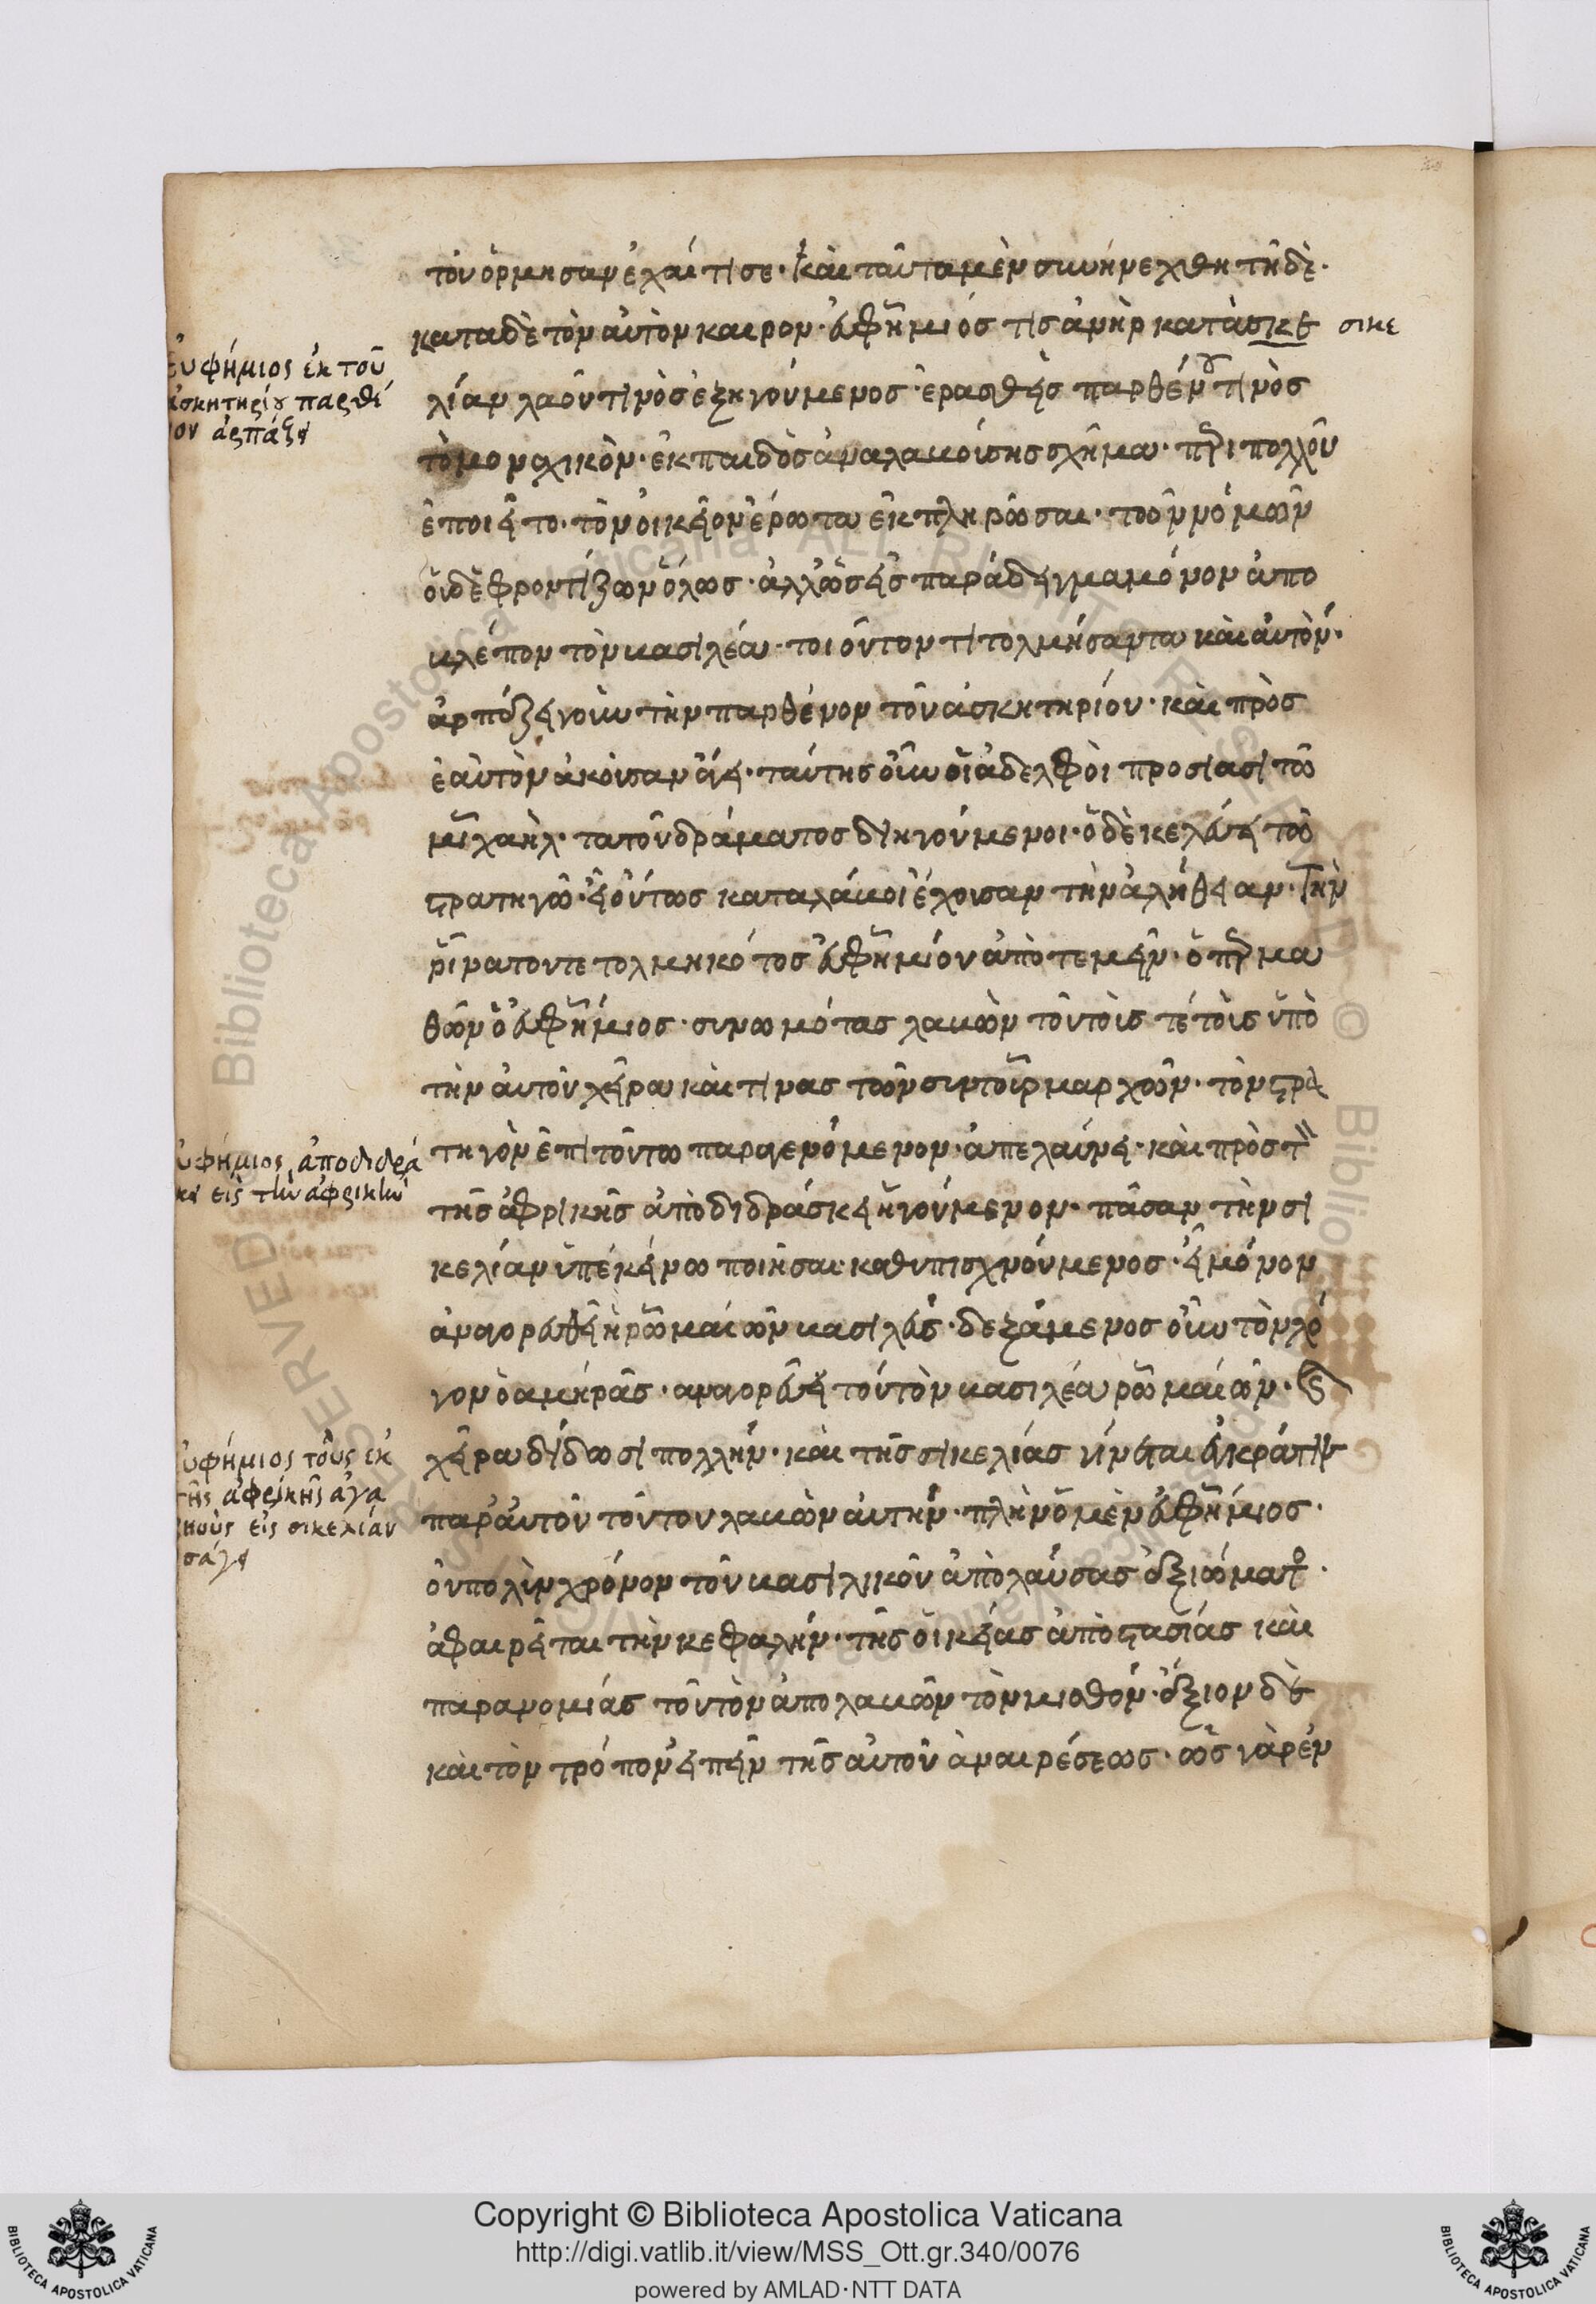 τὸν ὁρμησαν ἐχαύτισε· καὶ ταῦτα μὲν συνήνεχθη τῆδε·
κατα δὲ τὸν ἀυτὸν καιρον· ἐυφήμιός τὶς ἀνὴρ κατὰ σκε
σικε
λίαν λαοῦ τινὸς ἐξηγούμενος· ἐρασθεὶς παρθένου τινὸς
τὸ μοναχικὸν· ἐκ παιδὸς ἀναλαβούσης σχῆμα· περὶ πολλοῦ
ἐποιεῖτο· τὸν οἰκεῖον ἔρωτα ἐκπληρῶσαι· τῶν νόμων
οὐδὲ φροντίζων ὅλως· ἀλλ' ὡς εἰς παράδειγμα μόνον ἀπο
βλέπον τὸν βασιλέα· τοιοῦτον τὶ τολμήσαντα καὶ ἀυτὸν·
ἁρπάζει γοῦν τὴν παρθένον τοῦ ἀσκητηρίου· καὶ πρὸς
ἑαυτὸν ἀκουσαν ἄγει· ταύτης οὖν οἱ ἀδελφοὶ προσίασι τῶ
μιχαὴλ· τα τοῦ δράματος διηγούμενοι· ὁ δὲ κελεύει τῶ
στρατηγῶ· εἰ οὕτως καταλάβοι ἔχουσαν τὴν ἀλήθειαν· τὴν
ρῖνα του τετολμηκότος ἐυφημίου ἀποτεμεῖν· ὁ περ μα
θῶν ὁ ἐυφήμιος· συνωμότας λαβὼν τοῦτοις τὲ τοῖς ὑπὸ
τὴν ἀυτοῦ χεῖρα καὶ τινας τῶν συντουρμαρχῶν· τὸν στρα
τηγὸν ἐπὶ τοῦτω παραγενόμενον· ἀπελαύνει· καὶ πρὸς τὸν
τῆς ἀφρικῆς ἀποδιδράσκει ἡγούμενον· πᾶσαν τὴν σι
κελίαν ὑπ' ἐκείνω ποιῆσαι καθυπισχνούμενος· εἰ μόνον
ἀναγορευθείη ῥωμαίων βασιλεύς· δεξάμενος οὖν τὸν λό
γον ὁ αμηρᾶς· αναγορεύει τοῦτον βασιλέα ῥωμαίων·
χεῖρα δίδωσι πολλήν· καὶ τῆς σικελίας γίνεται ἐγκρατὴς
παρ' ἀυτοῦ τούτου λαβὼν ἀυτήν· πλὴν ὁ μὲν ἐυφήμιος·
οὐ πολὺν χρόνον τοῦ βασιλικοῦ ἀπολαύσας ἀξιώματος·
ἀφαιρεῖται τὴν κεφαλήν· τῆς οἰκείας ἀποστασίας καὶ
παρανομίας τοῦτον ἀπολαβῶν τὸν μισθόν· ἄξιον δὲ
καὶ τὸν τρόπον εἰπεῖν τῆς ἀυτοῦ ἀναιρέσεως· ὡς γὰρ ἐν
ευφήμιος ἐκ τοῦ
ἀσκητηρίου παρθέ
νον ἁρπάζει
ευφήμιος ἀποδιδρά
σκει εἰς τὴν ἀφρικὴν
ευφήμιος τοὺς ἐκ
τῆς ἀφρικῆς ἀγα
ρηνοὺς εἰς σικελίαν
εἰσάγει
Copyright © Biblioteca Apostolica Vaticana
http://digi.vatlib.it/view/MSS_Ott.gr.340/0076
powered by AMLAD·NTT DATA